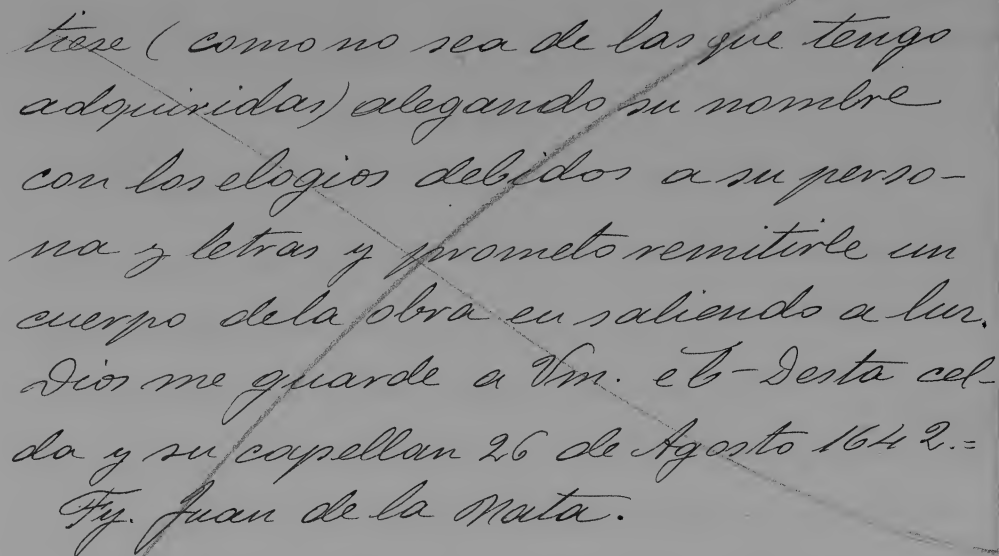 tiese (como no sea de las que tengo
adquiridas) alegando su nombre
con los elogios debidos a su perso-
na y letras y prometo remitirle un
cuerpo dela obra en saliendo a luz.
Dios me guarde a Vm. et- Desta cel-
da y su capellan 26 de Agosto 1642.=
Fy. Juan de la Mata.